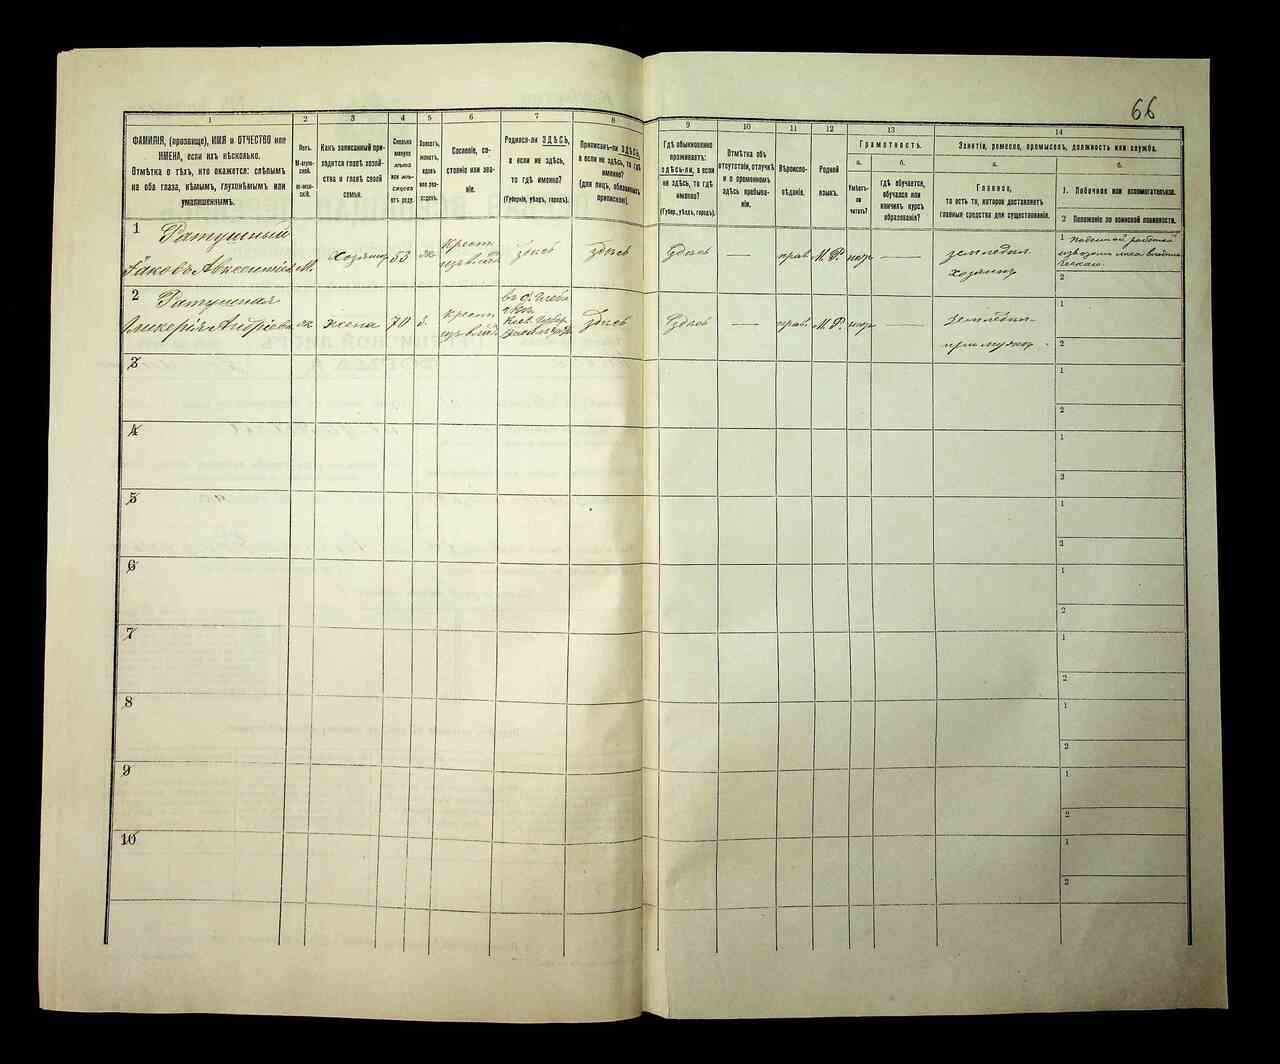 66
1
2
3
4
5
6
7
8
9
10
11
12
13
14
ФАМИЛІЯ, (прозвище), ИМЯ и ОТЧЕСТВО или
ИМЕНА, если ихъ нѣсколько.
Отмѣтка о тѣхъ, кто окажется: слѣпымъ
на оба глаза, нѣмымъ, глухонѣмымъ или
умалишеннымъ.
Полъ.
М-мужской.
Ж-женскій.
Какъ записанный при-
ходится главѣ хозяй-
ства и главѣ своей
семьи.
Сколько
минуло
лѣтъ
или мѣ-
сяцевъ
отъ роду.
Холостъ,
женатъ,
вдовъ
или раз-
веденъ.
Сословіе, со-
стояніе или зва-
ніе.
Родился-ли ЗДѢСЬ,
а если не здѣсь,
то гдѣ именно?
(Губернія, уѣздъ, городъ).
Приписанъ-ли ЗДѢСЬ,
а если не здѣсь, то гдѣ
именно?
(для лицъ, обязанныхъ
припискою).
Гдѣ обыкновенно
проживаетъ:
здѣсь-ли, а если
не здѣсь, то гдѣ
именно?
(Губер., уѣздъ, городъ).
Отмѣтка объ
отсутствіи, отлучкѣ
и о временномъ
здѣсь пребыва-
ніи.
Вѣроиспо-
вѣданіе.
Родной
языкъ.
Грамотность.
а.
Умѣетъ-
ли
читать?
б.
гдѣ обучается,
обучался или
кончилъ курсъ
образованія?
Занятіе, ремесло, промыселъ, должность или служба.
а.
Главное,
то есть то, которое доставляетъ
главныя средства для существованія.
б.
1. Побочное или вспомогательное.
2 Положеніе по воинской повинности.
1
Ратушный
Іаковъ Авксентіевъ
М.
хозяинъ
53
ж
крест.
изъ влад.
здѣсь
здѣсь
здѣсь
—
прав.
М. Р.
—
земледѣл.
хозяинъ
1
2
2
Ратушная
Гликерія Андріева
ж
жена
70
з.
крест.
изъ влад.
здѣсь
здѣсь
—
прав.
М. Р.
—
земледѣл.
при мужѣ
1
2
3
1
2
4
1
2
5
1
2
6
1
2
7
1
2
8
1
2
9
1
2
10
1
2